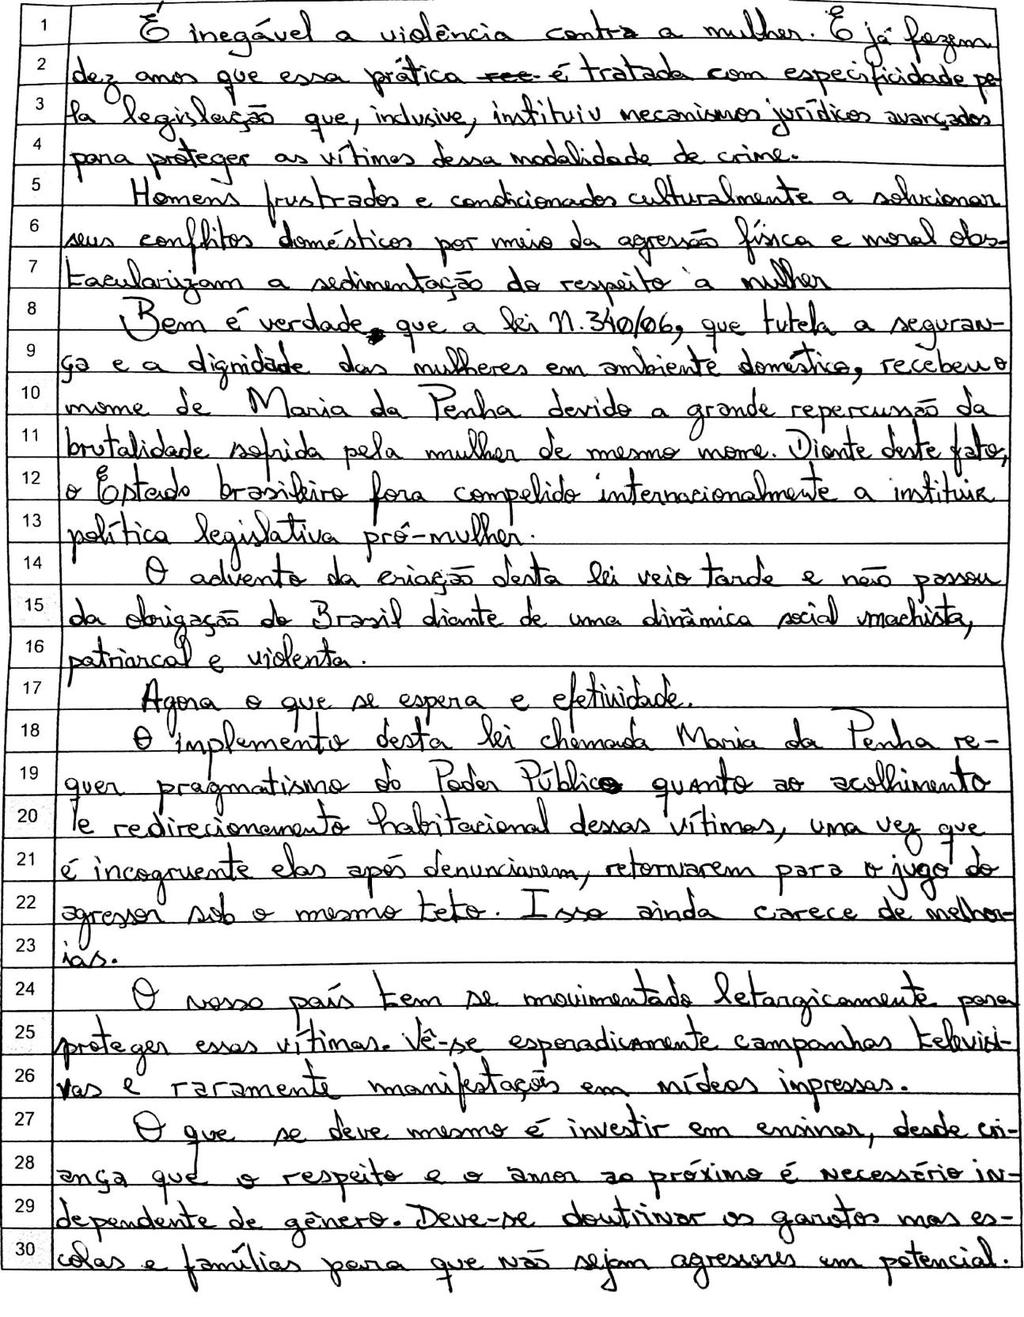 1 É inegável a violência contra a mulher. E já fazem
2 dez anos que essa prática é tratada com especificidade pe-
3 la legislação que, inclusive, instituiu mecanismos jurídicos avançados
4 para proteger as vítimas dessa modalidade de crime.
5 Homens frustrados e condicionados culturalmente a solucionar
6 seus conflitos domésticos por meio da agressão física e moral obs-
7 tacularizam a sedimentação do respeito à mulher
8 Bem é verdade que a lei n. 340/06, que tutela a seguran-
9 ça e a dignidade das mulheres em ambiente doméstico, recebeu o
10 nome de Maria da Penha devido a grande repercussão da
11 brutalidade sofrida pela mulher de mesmo nome. Diante deste fato,
12 o Estado brasileiro fora compelido internacionalmente a instituir
13 política legislativa pró-mulher.
14 O advento da criação desta lei veio tarde e não passou
15 da obrigação do Brasil diante de uma dinâmica social machista,
16 patriarcal e violenta.
17 Agora o que se espera e efetividade.
18 O implemento desta lei chamada Maria da Penha re-
19 quer pragmatismo do Poder Público quanto ao acolhimento
20 e redirecionamento habitacional dessas vítimas, uma vez que
21 é incogruente elas após denunciarem, retornarem para o jugo do
22 agressor sob o mesmo teto. Isso ainda carece de melhor-
23 ias.
24 O nosso país tem se movimentado letargicamente para
25 proteger essas vítimas. Vê-se esporadicamente campanhas televisi-
26 vas e raramente manifestações em mídeas impressas.
27 O que se deve mesmo é investir em ensinar, desde cri-
28 ança que o respeito e o amor ao próximo é necessário in-
29 dependente de gênero. Deve-se doutrinar os garotos nas es-
30 colas e famílias para que não sejam agressores em potencial.